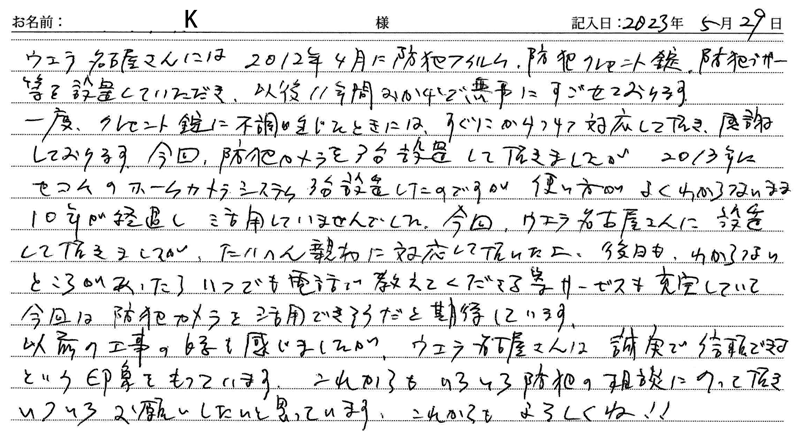 お名前： K 様 記入日：2023年 5月 29日
ウエラ名古屋さんには 2012年4月に防犯フィルム、防犯クレセント錠、防犯ブザー
等を設置していただき、以後11年間おかげで無事にすごせております。
一度、クレセント錠に不調が生じたときには、すぐにかけつけ対応して頂き、感謝
しております。今回、防犯カメラを3台設置して頂きましたが 2013年に
セコムのホームカメラシステム3台設置したのですが 使い方が よくわからないまま
10年が経過し 活用していませんでした。今回、ウエラ名古屋さんに 設置
して頂きましたが、たいへん親切に対応して頂いた上、後日も、わからない
ところがあったらいつでも電話で教えてくださる等サービスも充実していて
今回は 防犯カメラを活用できそうだと期待しています。
以前の工事の時も感じましたが、ウエラ名古屋さんは 誠実で信頼できる
という印象をもっています。これからもいろいろ防犯の相談にのって頂き
いろいろお願いしたいと思っています。これからも よろしくね！！